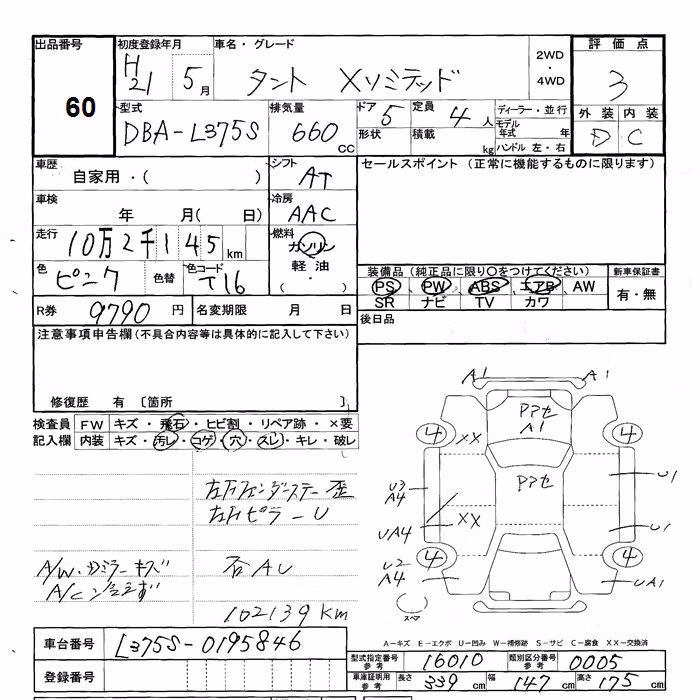 出品番号 初度登録年月 車名・グレード 2WD・4WD 評価点
60 H21 5月 タント Xリミテッド 3
型式 排気量 ドア 定員 ディーラー・並行 外装 内装
DBA-L375S 660cc 5 4人 モデル年式 年 D C
形状 積載 kg ハンドル 左・右
車歴 シフト セールスポイント (正常に機能するものに限ります)
自家用・( ) AT
車検 冷房
年 月( 日) AAC
走行 燃料
10万2千145km ガソリン
軽油
・( )
色 色替 色コード 装備品 (純正品に限り○をつけてください) 新車保証書
ピンク T16 PS、PW、ABS、エアB、AW 有・無
SR ナビ TV カワ
R券 9790円 名変期限 月 日 後日品
注意事項申告欄(不具合内容等は具体的に記入して下さい)
修復歴 有 〔箇所 〕
検査員 FW キズ・飛石・ヒビ割・リペア跡・×要
記入欄 内装 キズ・汚レ・コゲ・穴・スレ・キレ・破レ
左Fフェンダーステー歪
左Fピラー U
A/W・ミラーキズ
A/C
各AU
102139KM
A1 A1
Pアセ
A1
4 4
XX
Pアセ
U3
A4
U1
XX
UA4
U1
U2
A4
4 4
UA1
スペア
A-キズ E-エクボ U-凹み W-補修跡 S-サビ C-腐食 XX-交換済
車台番号 L375S-0195846
型式指定番号 参考 16010 類別区分番号 参考 0005
登録番号
車庫証明用 参考 長さ 339cm 幅 147cm 高さ 175cm